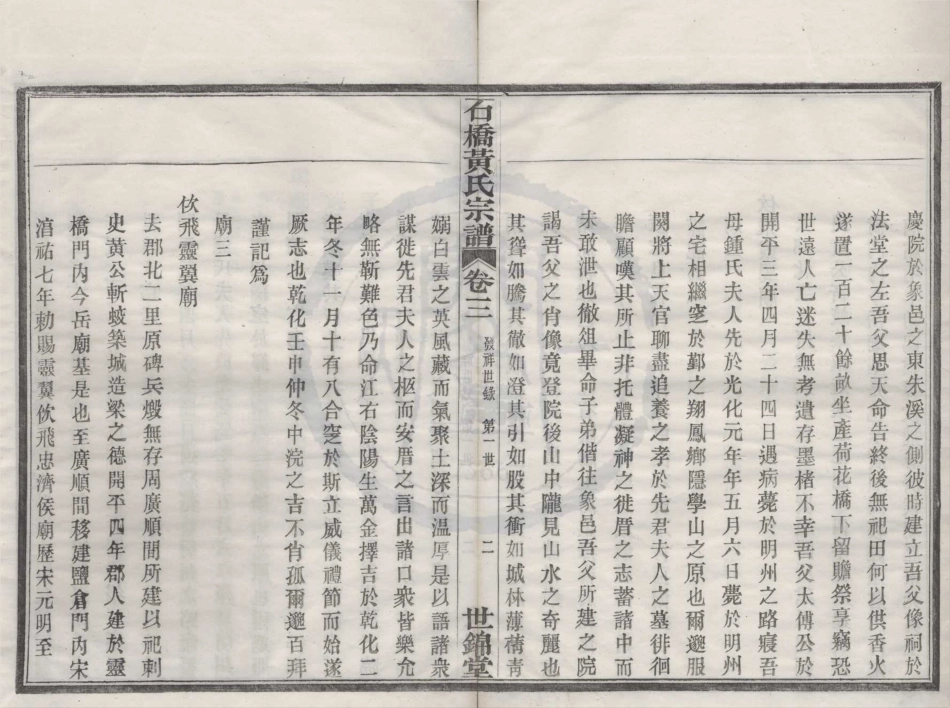 慶院於象邑之東朱溪之側彼時建立吾父像祠於
法堂之左吾父思天命告終後無祀田何以供香火
遂置一百二十餘畝坐產荷花橋下留贍祭享竊恐
世遠人亡迷失無考遺存墨楮不幸吾父太傅公於
開平三年四月二十四日遇病薨於明州之路寢吾
母鍾氏夫人先於光化元年年五月六日薨於明州
之宅相繼窆於鄞之翔鳳鄉隱學山之原也爾邈服
闋將上天官聊盡追養之孝於先君夫人之墓徘徊
瞻顧嘆其所止非托體凝神之徙厝之志蓄諸中而
未敢泄也徹俎畢命子弟偕往象邑吾父所建之院
謁吾父之肖像竟登院後山中隴見山水之奇麗也
其聳如騰其徹如澄其引如股其衝如城林薄蒨青
石橋黃氏宗譜 卷三 發祥世錄 第一世 二 世錦堂
嫋白雲之英風藏而氣聚土深而温厚是以語諸衆
謀徙先君夫人之柩而安厝之言出諸口衆皆樂允
略無靳難色乃命江右陰陽生萬金擇吉於乾化二
年冬十一月十有八合窆於斯立威儀禮節而始遂
厥志也乾化壬申仲冬中浣之吉不肖孤爾邈百拜
謹記爲
廟三
佽飛靈翼廟
去郡北二里原碑兵燬無存周廣順間所建以祀刺
史黃公斬蛟築城造梁之德開平四年郡人建於靈
橋門內今岳廟基是也至廣順間移建鹽倉門內宋
湻祐七年勅賜靈翼佽飛忠濟侯廟歷宋元明至